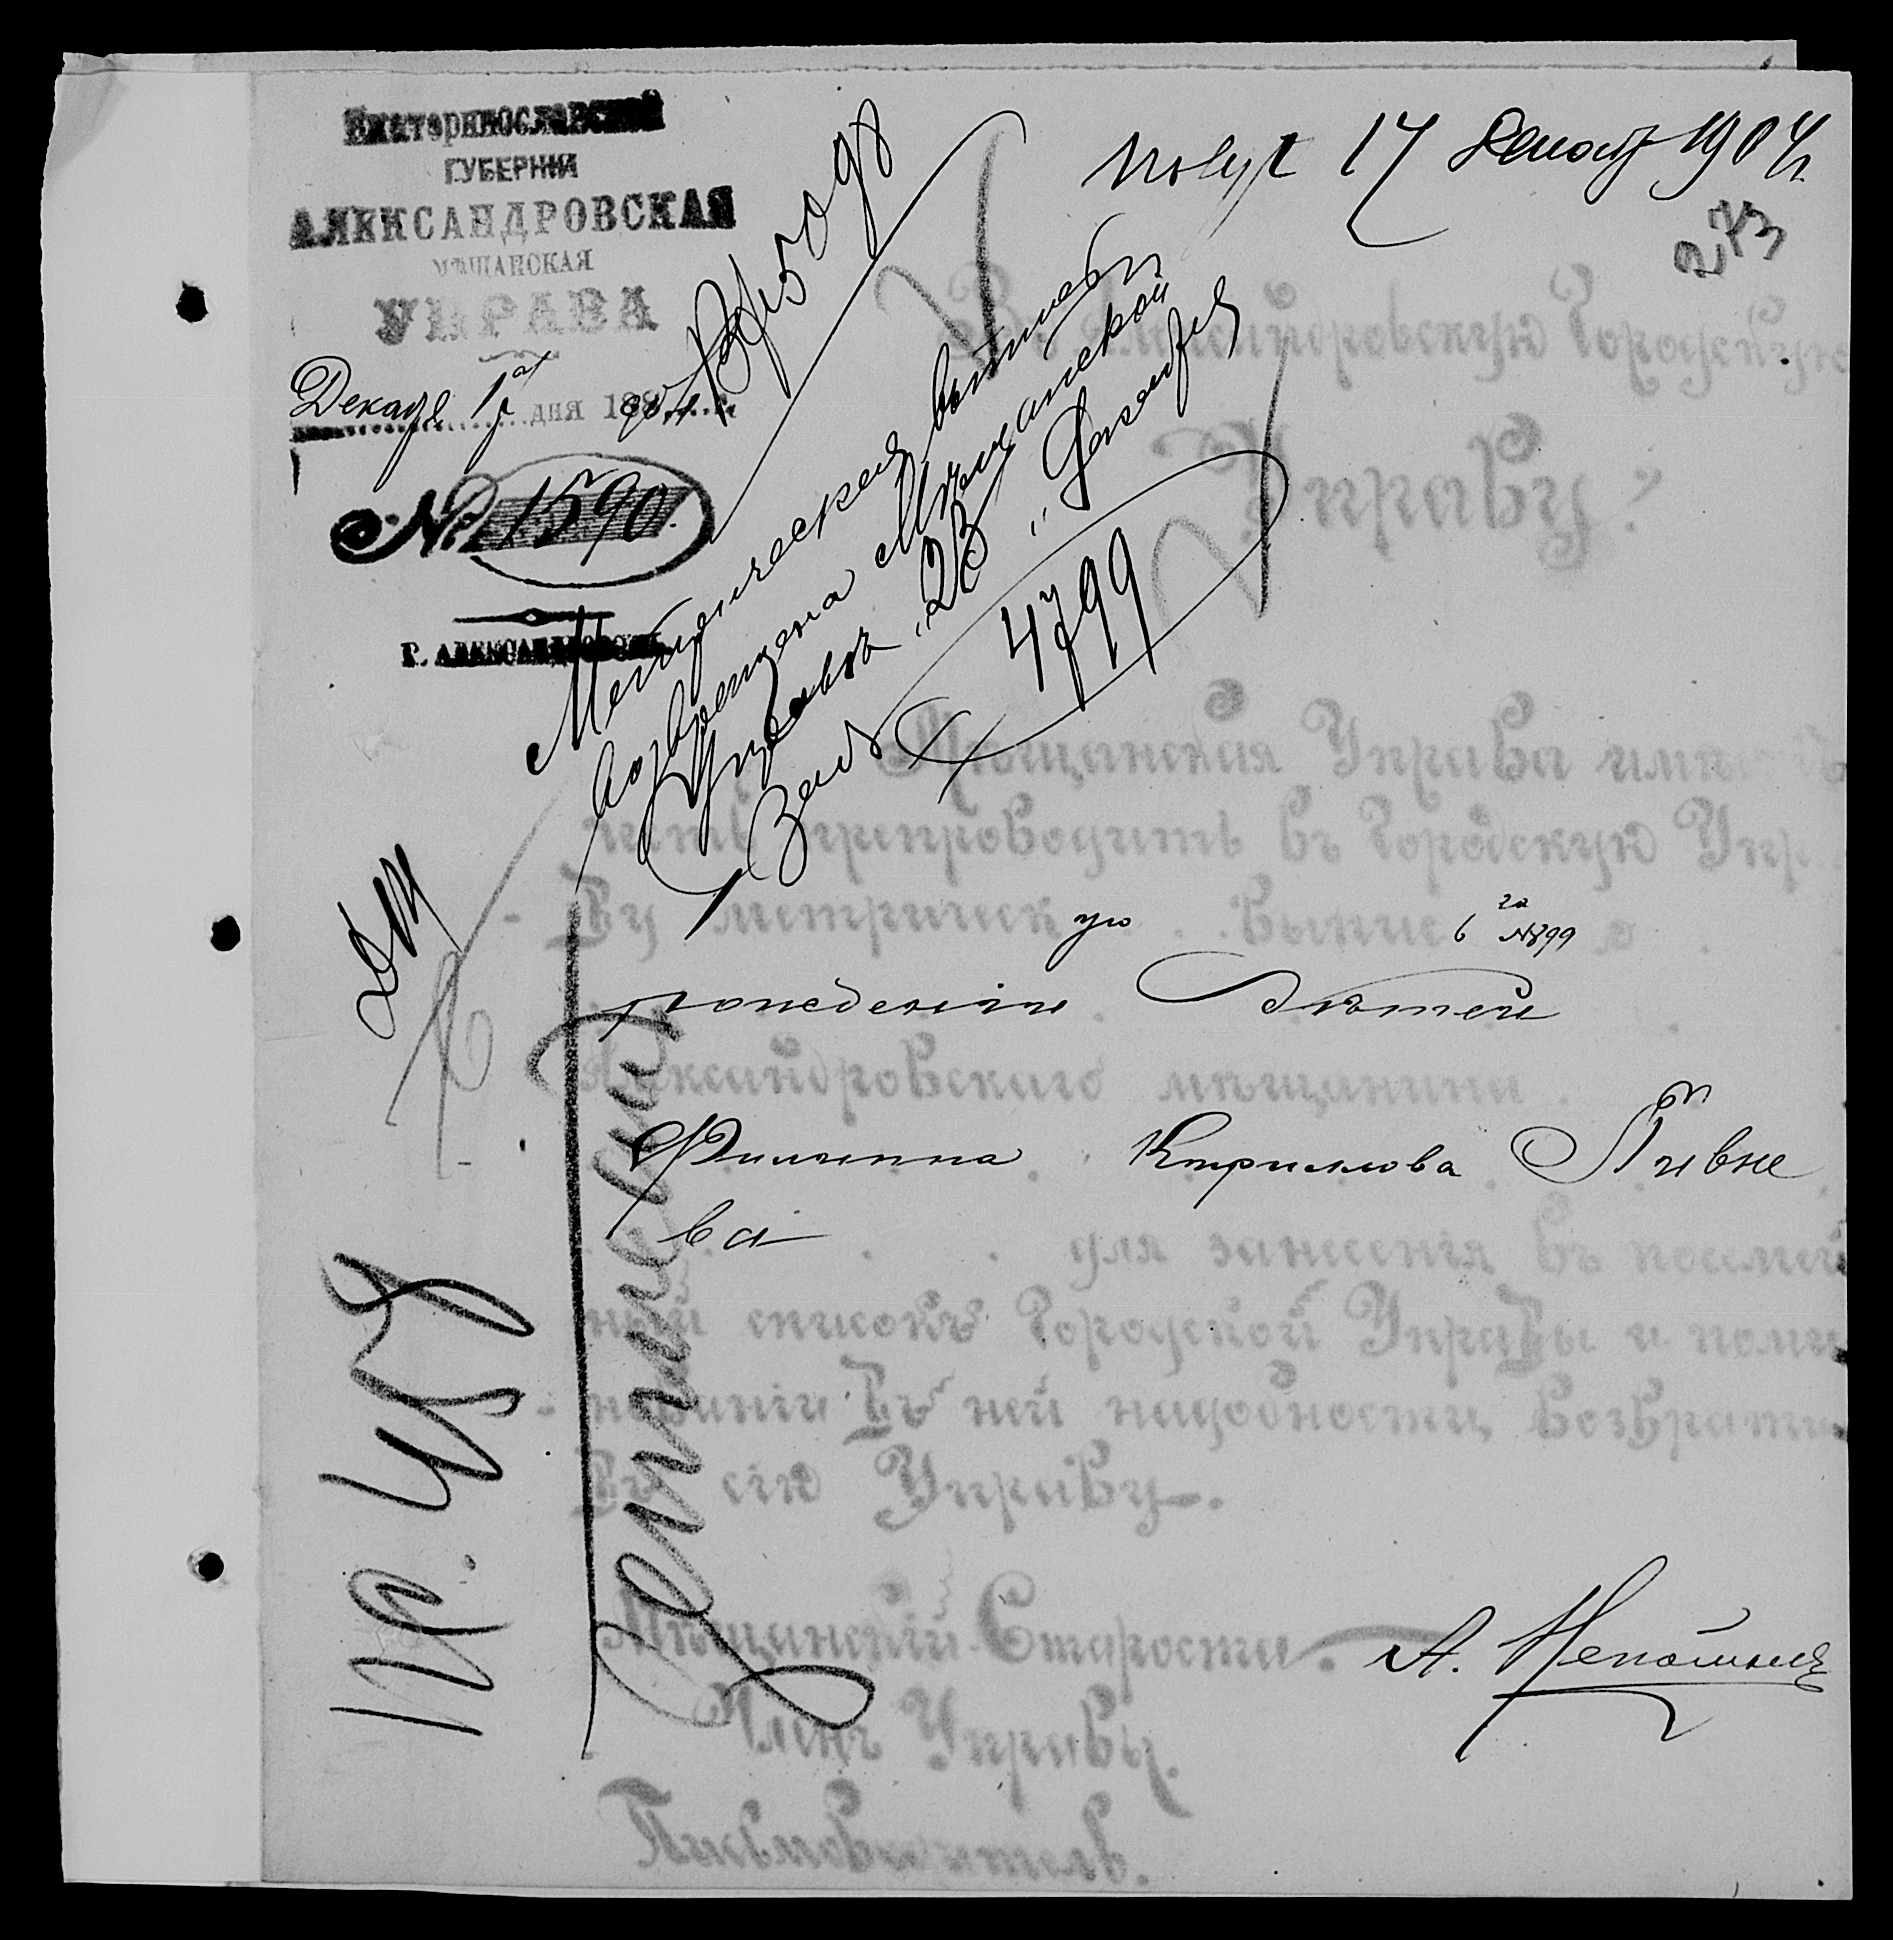 Екатеринославской
ГУБЕРНІИ
АЛЕКСАНДРОВСКАЯ
МѢЩАНСКАЯ
УПРАВА
дня 188
904
№ 1590
Г. АЛЕКСАНДРОВСКЪ
17 1904 г.
273
Метрическая выпись
возвращена Мѣщанской
Управѣ „23" Декабря
За № 4799
Въ Александровскую Городскую
Управу.
Мѣщанская Управа имѣетъ
честь препроводить въ Городскую Упр
ву метрическую выпись за № 899 о
рожденіи дѣтей
Александровскаго мѣщанина
Филиппа Кирилова Пивне
ва для занесенія въ посемей
ный списокъ Городской Управы и по ми
нованіи въ ней надобности, возврати
въ сію Управу.
Мѣщанскій Староста А.
Членъ Управы
Письмоводитель